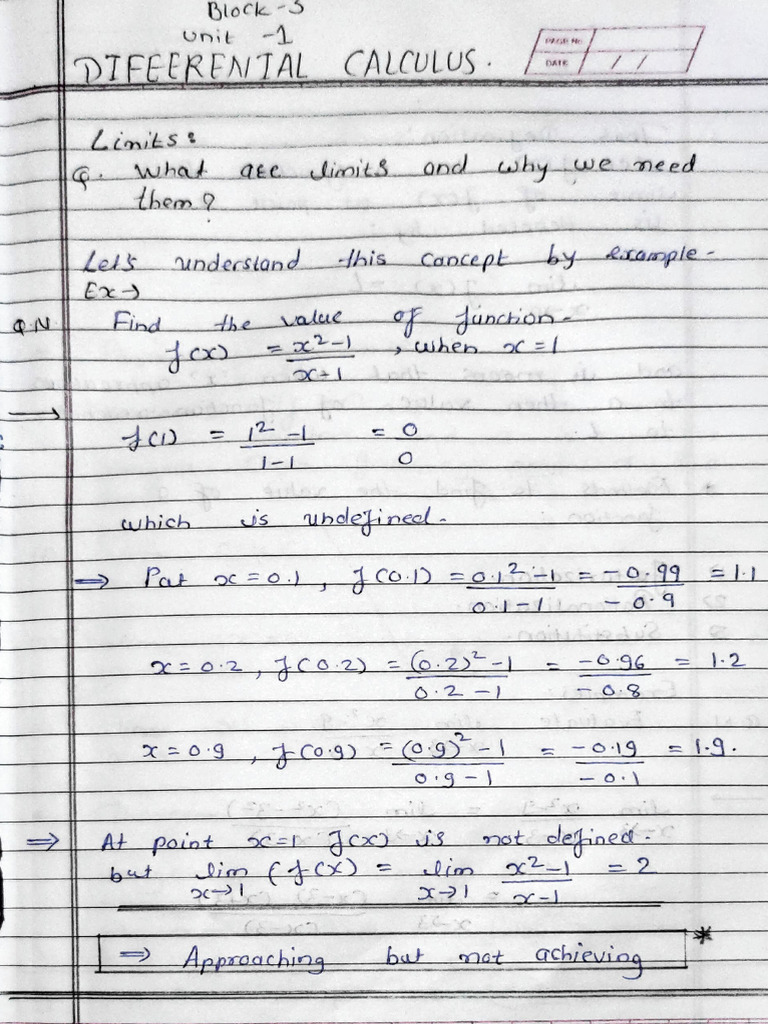 Block-3
Unit -1
DIFEERENTAL CALCULUS.
PAGE No
DATE / /
Limits:
Q. What are limits and why we need
them?
Let's understand this concept by example-
Ex→
Q.N Find the value of function-
f(x) = x²-1/x+1, when x=1
→
f(1) = 1²-1/1-1 = 0/0
which is undefined.
⇒ Put x=0.1, f(0.1) = 0.1²-1/0.1-1 = -0.99/-0.9 = 1.1
x=0.2, f(0.2) = (0.2)²-1/0.2-1 = -0.96/-0.8 = 1.2
x=0.9, f(0.9) = (0.9)²-1/0.9-1 = -0.19/-0.1 = 1.9.
⇒ At point x=1 f(x) is not defined.
but lim x→1 (f(x) = lim x→1 x²-1/x-1 = 2
⇒ Approaching but not achieving *